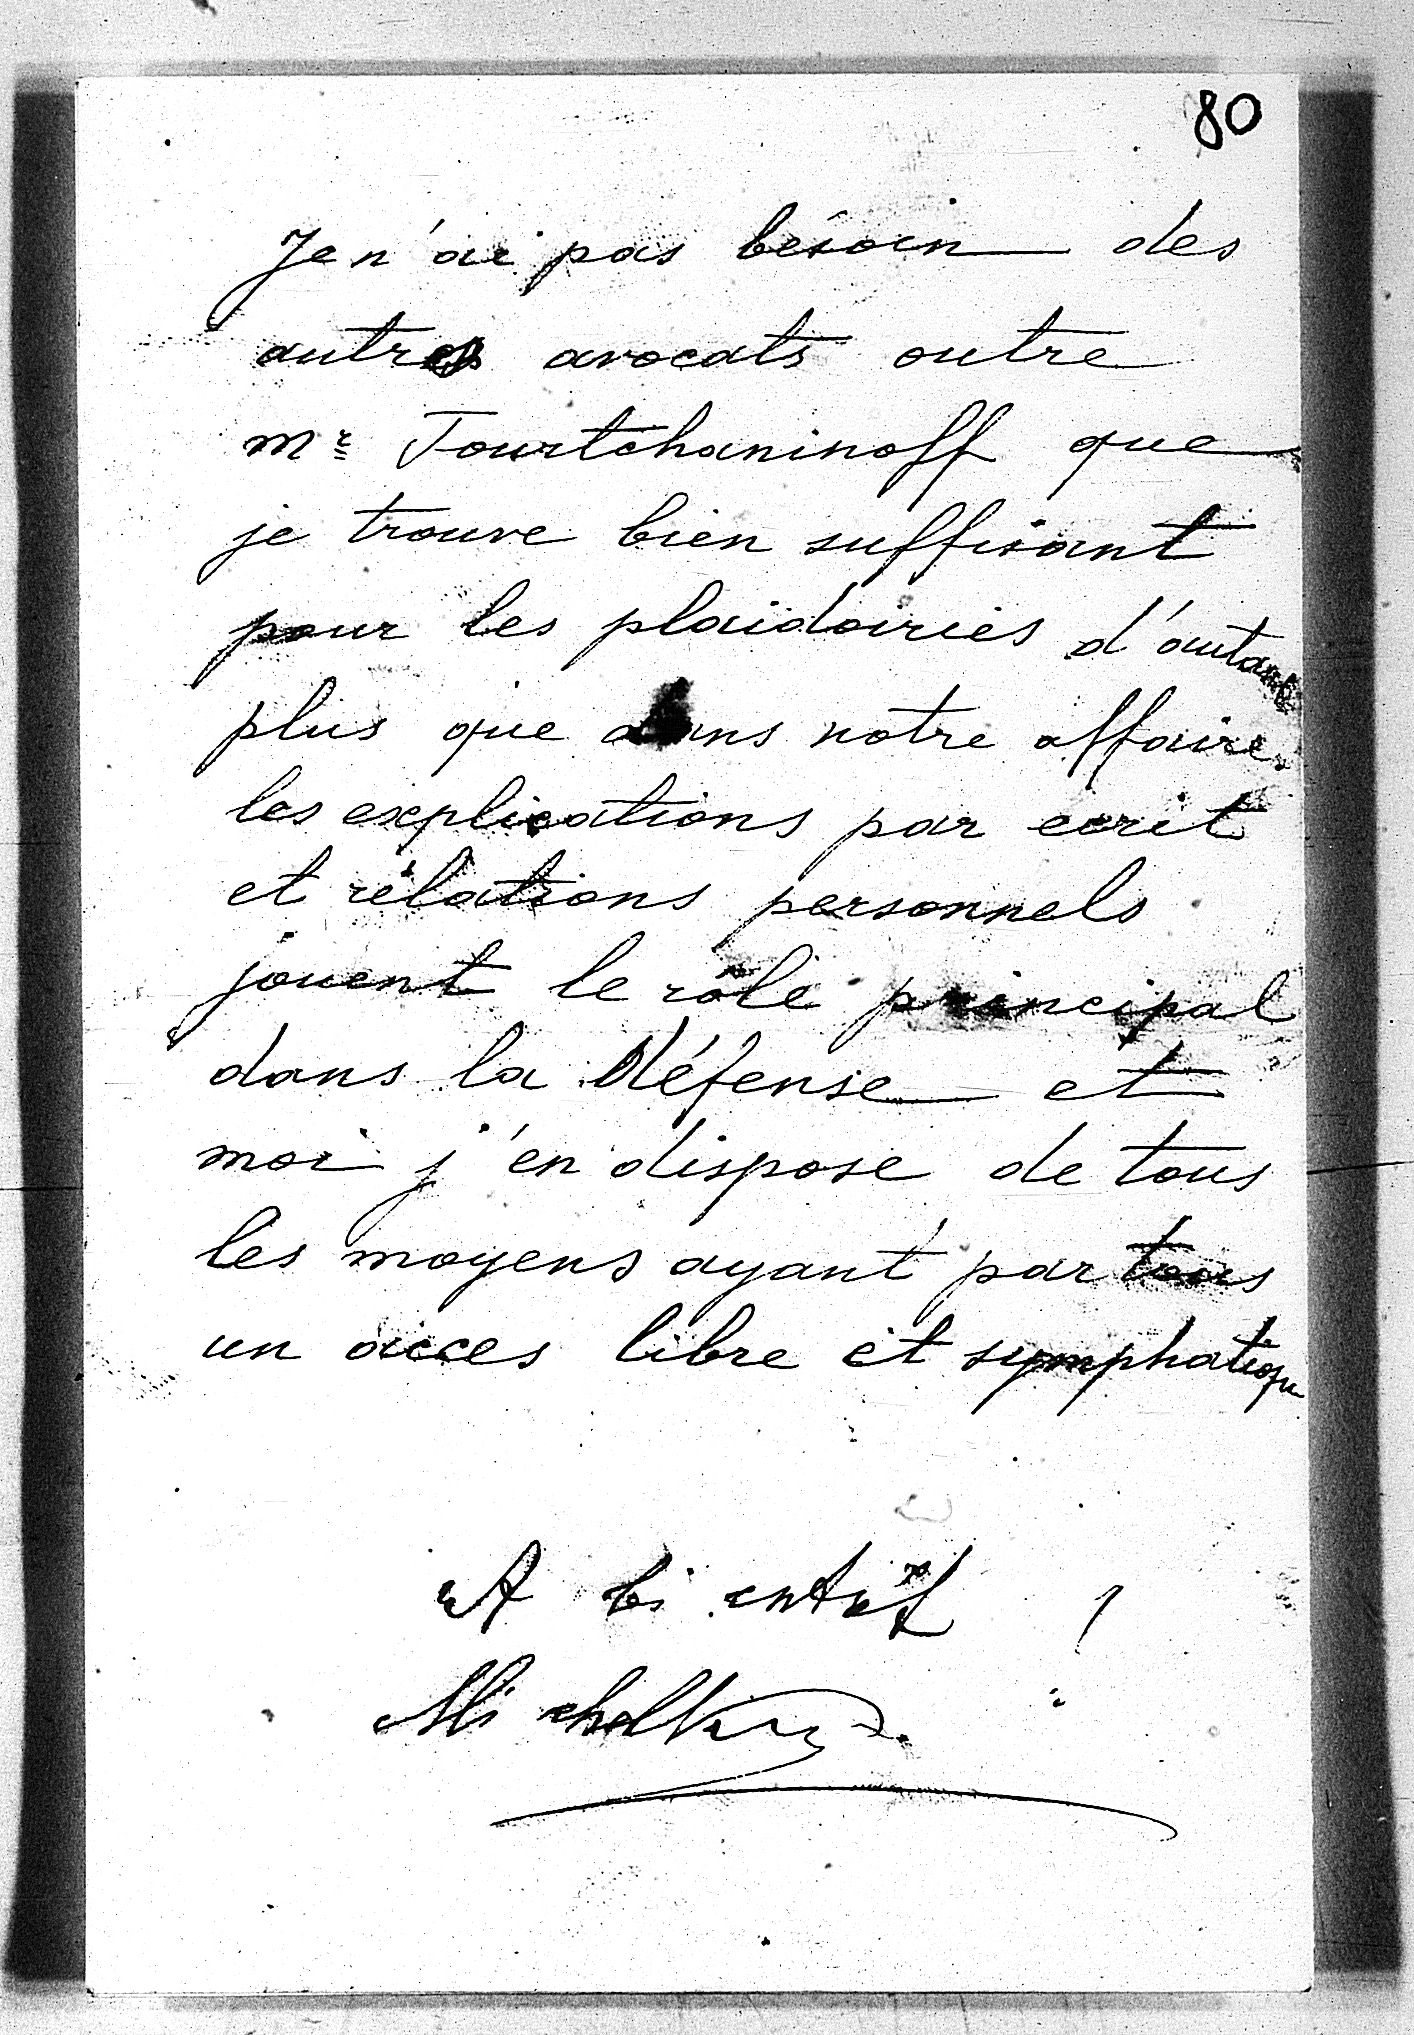 80
Je n'ai pas besoin des
autres avocats outre
Mr Tourtchaninoff que
je trouve bien suffisant
pour les plaidoiries d'autant
plus que dans notre affaire
les explications par ecrit
et rélations personnels
jouent le rôle principal
dans la défense et
moi j'en dispose de tous
les moyens ayant par tous
un acces libre et symphatique
A bientôt !